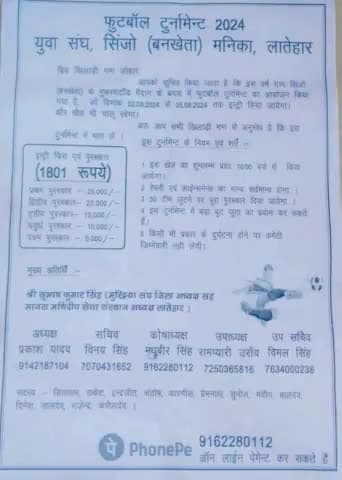 फुटबॉल टुर्नामेन्ट 2024
युवा संघ, सिंजो (बनखेता) मनिका, लातेहार
प्रिय खिलाड़ी गण जोहार,
आपको सूचित किया जाता है कि इस वर्ष ग्राम सिंजो
(बनखेता) के मैदान में फुटबॉल टुर्नामेन्ट का आयोजन किया
गया है, जो दिनांक 02.08.2024 से 05.08.2024 तक इन्ट्री लिया जायेगा।
और खेल भी चालू रहेगा।
अतः आप सभी खिलाड़ी गण से अनुरोध है कि इस
टुर्नामेन्ट में भाग लें।
इस टुर्नामेन्ट के नियम एवं शर्तें :-
इन्ट्री फिस एवं पुरस्कार
(1801 रूपये)
प्रथम पुरस्कार - 25,000/-
द्वितीय पुरस्कार - 20,000/-
तृतीय पुरस्कार - 10,000/-
चतुर्थ पुरस्कार - 10,000/-
पंचम पुरस्कार - 5,000/-
1 इस खेल का शुभारम्भ प्रातः 10:00 बजे से किया
जायेगा।
2 रेफरी एवं लाईन्समेन्स का मान्य सर्वमान्य होगा।
3 50 टीम जुटने पर पूरा पुरस्कार दिया जायेगा।
4 इस टुर्नामेन्ट में बड़ा बुट जुता का प्रयोग कर सकते
हैं।
5 किसी भी प्रकार के दुर्घटना होने पर कमेटी
जिम्मेवारी नहीं लेगी।
मुख्य अतिथि :-
श्री सुभाष कुमार सिंह (मुखिया संघ जिला अध्यक्ष सह
मानस मणिदीप सेवा संस्थान अध्यक्ष लातेहार)
अध्यक्ष सचिव कोषाध्यक्ष उपाध्यक्ष उप सचिव
प्रकाश यादव विनय सिंह मधुबीर सिंह रामप्यारी उराँव विमल सिंह
9142187104 7070431652 9162280112 7250365816 7634000236
सदस्य - राकेश, इन्द्रजीत, संतोष, प्रेमनाथ, सुनील,
दिनेश, राजेन्द्र,
पे PhonePe 9162280112
ऑन लाईन पेमेन्ट कर सकते हैं